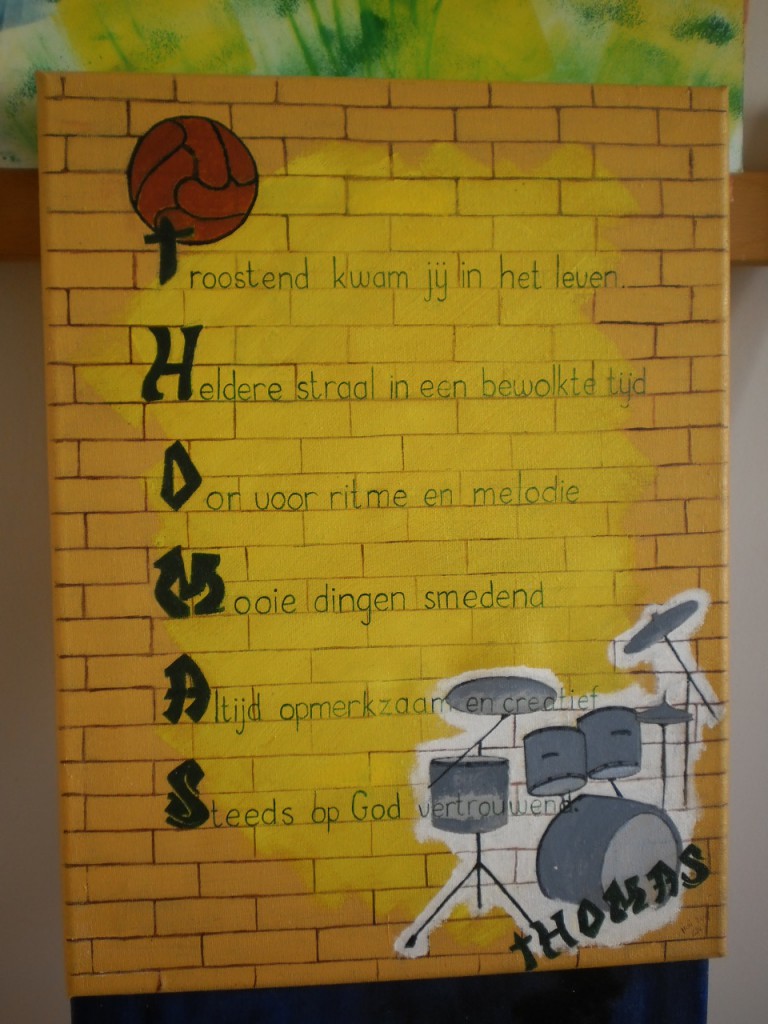 Troostend kwam jij in het leven.
Heldere straal in een bewolkte tijd
Oor voor ritme en melodie
Mooie dingen smedend
Altijd opmerkzaam en creatief
Steeds op God vertrouwend.
tHOMAS